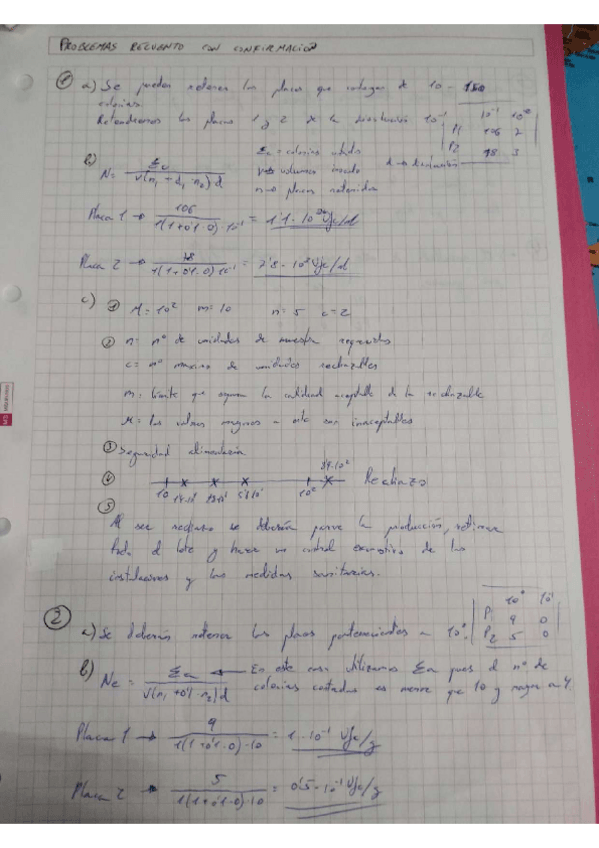 PROBLEMAS RECUENTO CON CONFIRMACIÓN
1 a) Se pueden retener las placas que tengan de 10 - 150
colonias.
Retendremos las placas 1 y 2 de la disolución 10⁻¹
10⁻¹ 10⁻²
P1 106 2
P2 18 3
b) N = Σc / V(n₁ + 0'1 · n₂) d
Σc = colonias
V = volumen
n → placas retenidas
d → disolución
Placa 1 → 106 / 1(1+0'1·0)·10⁻¹ =
Placa 2 → / 1(1+0'1·0)10⁻¹ =
c) 1 M = 10² m = 10 n = 5 c = 2
2 n = nº de unidades de muestra
c = nº máximo de unidades rechazables
m = límite que separa la calidad aceptable de la rechazable
M = los valores mayores a este son inaceptables
3 Seguridad alimentaria.
4 10 10² Rechazo
5
Al ser rechazo se deberán parar la producción, retirar
todo el lote y hacer un control exhaustivo de las
instalaciones y las medidas sanitarias.
2 a) Se deberán retener las placas pertenecientes a 10⁰.
10⁰ 10⁻¹
P1 9 0
P2 5 0
b) Ne = Σc / V(n₁ + 0'1 · n₂) d
En este caso utilizamos pues el nº de
colonias contadas es menor que 10 y mayor a 4.
Placa 1 → 9 / 1(1+0'1·0)·10 = 1·10⁻¹ Ufc/g
Placa 2 → 5 / 1(1+0'1·0)·10 = 0'5·10⁻¹ Ufc/g